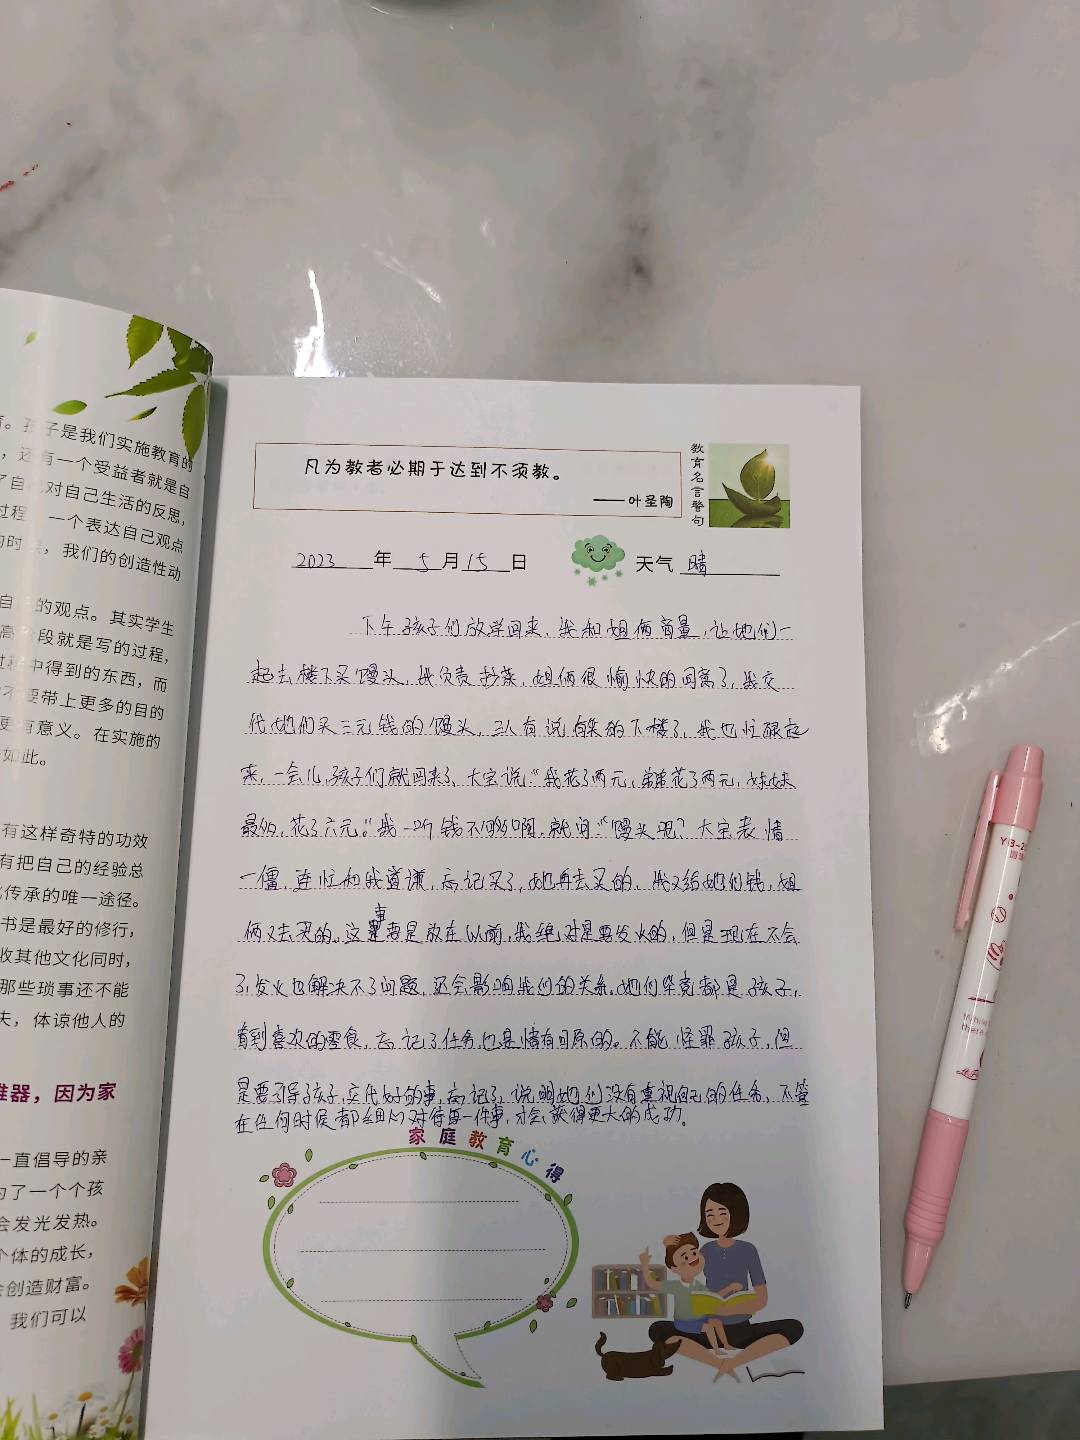 凡为教者必期于达到不须教。
——叶圣陶
教育名言警句
2023年5月15日 天气 晴
下午孩子们放学回来,我和姐俩商量,让她们一
起去楼下买馒头,我负责炒菜,姐俩很愉快的同意了,我交
代她们买三元钱的馒头,三人有说有笑的下楼了,我也忙碌起
来,一会儿,孩子们就回来了,大宝说:"我花了两元,弟弟花了两元,妹妹
最少,花了六元。"我一听钱不够啊,就问:"馒头呢?大宝表情
一僵,连忙和我道谦,忘记买了,她再去买的,我又给她们钱,姐
俩又去买的。这事要是放在以前,我绝对是要发火的,但是现在不会
了,发火也解决不了问题,还会影响我们的关系。她们毕竟都是孩子,
看到喜欢的零食,忘记了任务也是情有可原的。不能怪罪孩子,但
是要引导孩子,交代好的事,忘记了,说明她们没有重视自己的任务,不管
在任何时候都细心对待每一件事,才会获得更大的成功。
家庭教育心得
育。孩子是我们实施教育的
,还有一个受益者就是自
对自己生活的反思,
过程 一个表达自己观点
的时 ,我们的创造性动
自 的观点。其实学生
高 段就是写的过程,
过程中得到的东西,而
不要带上更多的目的
更有意义。在实施的
如此。
有这样奇特的功效
有把自己的经验总
传承的唯一途径。
书是最好的修行,
收其他文化同时,
那些琐事还不能
夫,体谅他人的
器,因为家
一直倡导的亲
为了一个个孩
会发光发热。
个体的成长,
会创造财富。
我们可以